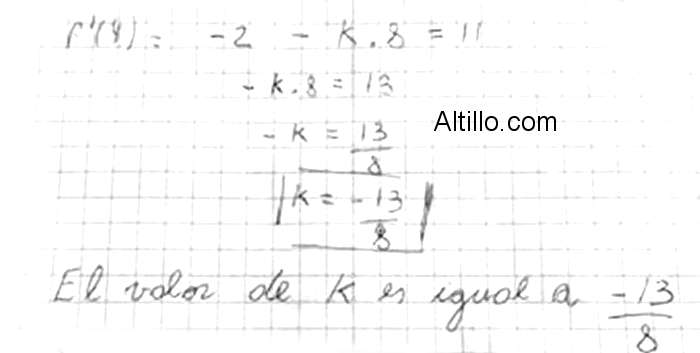 f'(8) = -2 - K . 8 = 11
- K . 8 = 13
- K = 13/8
Altillo.com
K = -13/8
El valor de K es igual a -13/8